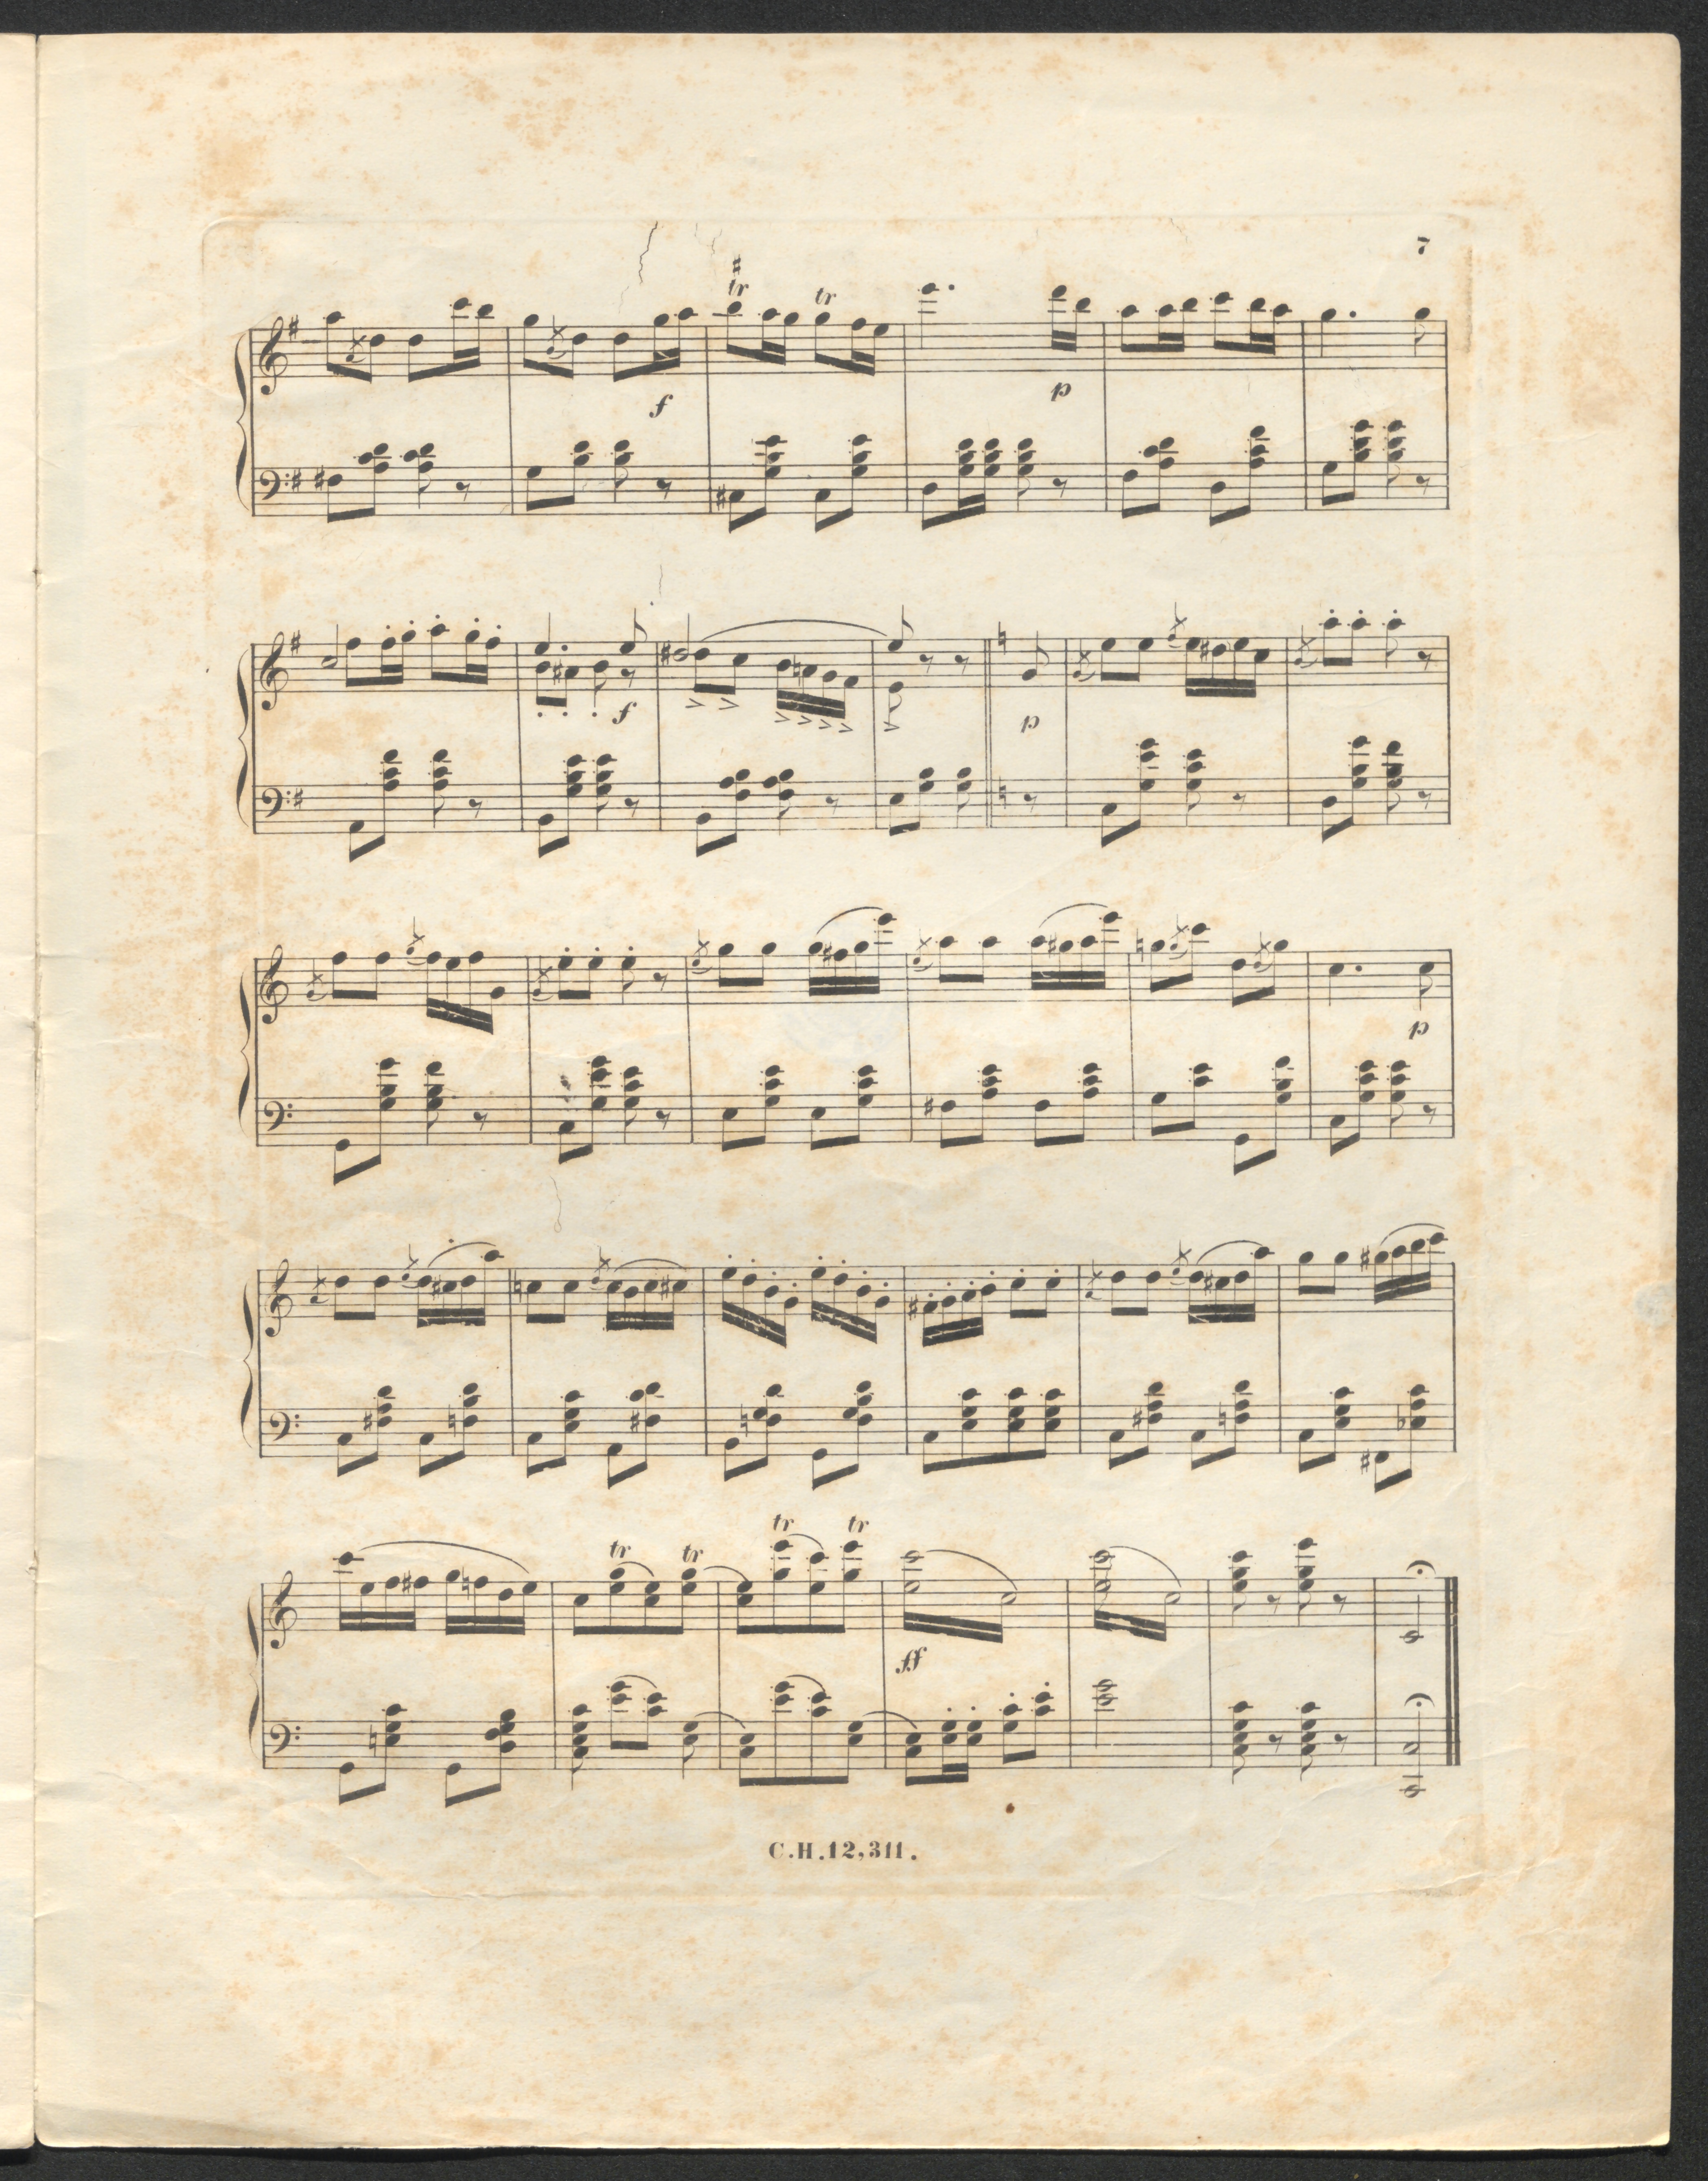 7
tr tr
f
p
f
p
p
tr tr tr tr
ff
C.H.12,311.